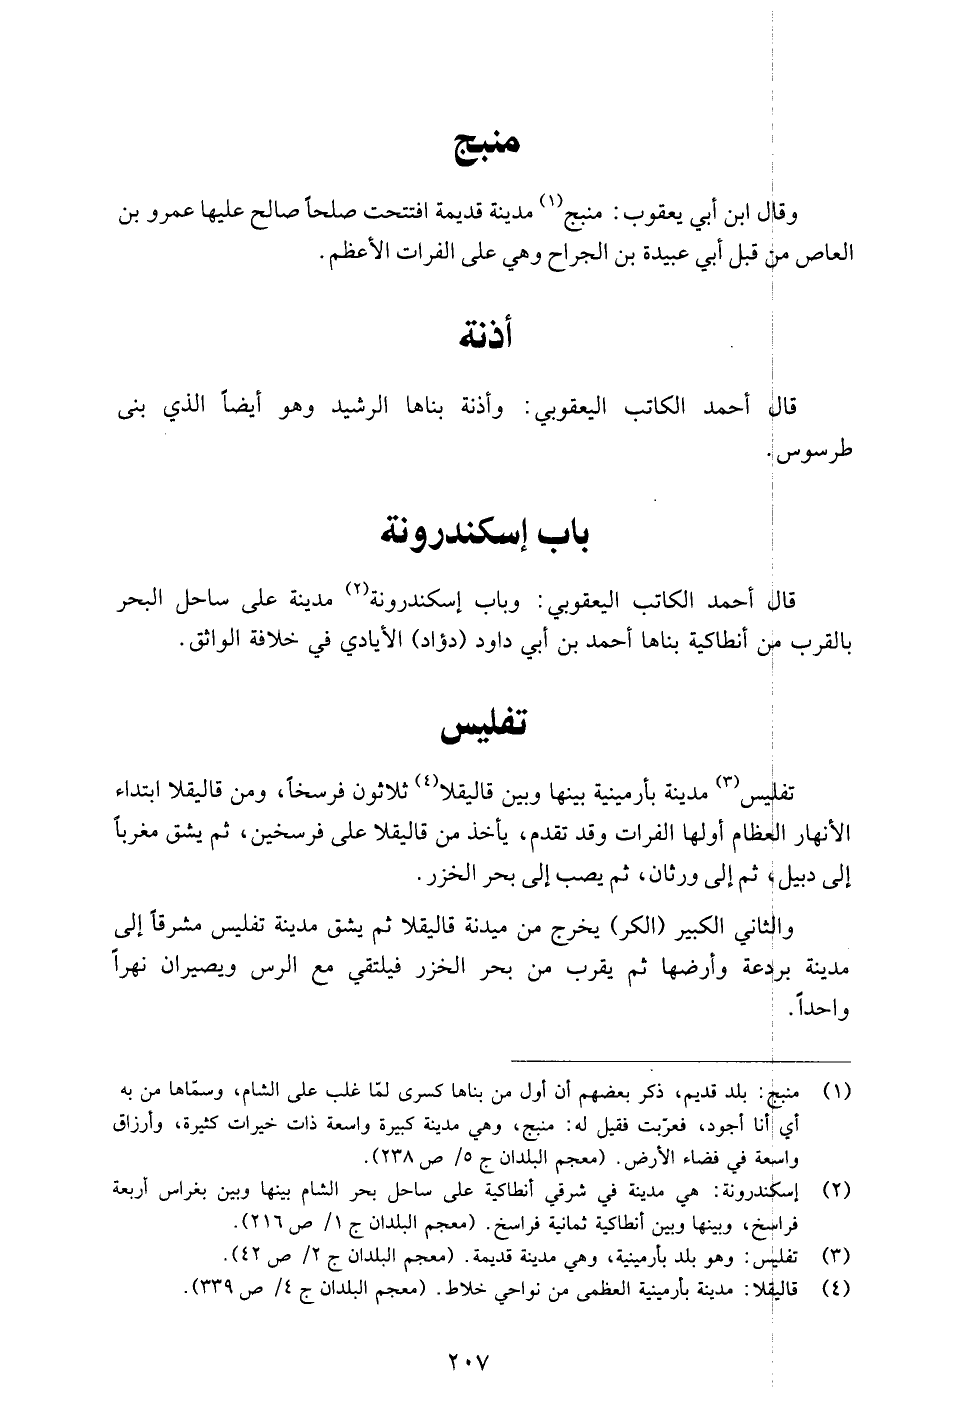 منبج
وقال ابن أبي يعقوب: منبج(١) مدينة قديمة افتتحت صلحاً صالح عليها عمرو بن
العاص من قبل أبي عبيدة بن الجراح وهي على الفرات الأعظم.
أذنة
قال أحمد الكاتب اليعقوبي: وأذنة بناها الرشيد وهو أيضاً الذي بنى
طرسوس.
باب إسكندرونة
قال أحمد الكاتب اليعقوبي: وباب إسكندرونة(٢) مدينة على ساحل البحر
بالقرب من أنطاكية بناها أحمد بن أبي داود (دؤاد) الأيادي في خلافة الواثق.
تفليس
تفليس(٣) مدينة بأرمينية بينها وبين قاليقلا(٤) ثلاثون فرسخاً، ومن قاليقلا ابتداء
الأنهار العظام أولها الفرات وقد تقدم، يأخذ من قاليقلا على فرسخين، ثم يشق مغرباً
إلى دبيل، ثم إلى ورثان، ثم يصب إلى بحر الخزر.
والثاني الكبير (الكر) يخرج من ميدنة قاليقلا ثم يشق مدينة تفليس مشرقاً إلى
مدينة بردعة وأرضها ثم يقرب من بحر الخزر فيلتقي مع الرس ويصيران نهراً
واحداً.
(١) منبج: بلد قديم، ذكر بعضهم أن أول من بناها كسرى لمّا غلب على الشام، وسمّاها من به
أي أنا أجود، فعرّبت فقيل له: منبج، وهي مدينة كبيرة واسعة ذات خيرات كثيرة، وأرزاق
واسعة في فضاء الأرض. (معجم البلدان ج ٥/ ص ٢٣٨).
(٢) إسكندرونة: هي مدينة في شرقي أنطاكية على ساحل بحر الشام بينها وبين بغراس أربعة
فراسخ، وبينها وبين أنطاكية ثمانية فراسخ. (معجم البلدان ج ١/ ص ٢١٦).
(٣) تفليس: وهو بلد بأرمينية، وهي مدينة قديمة. (معجم البلدان ج ٢/ ص ٤٢).
(٤) قاليقلا: مدينة بأرمينية العظمى من نواحي خلاط. (معجم البلدان ج ٤/ ص ٣٣٩).
٢٠٧